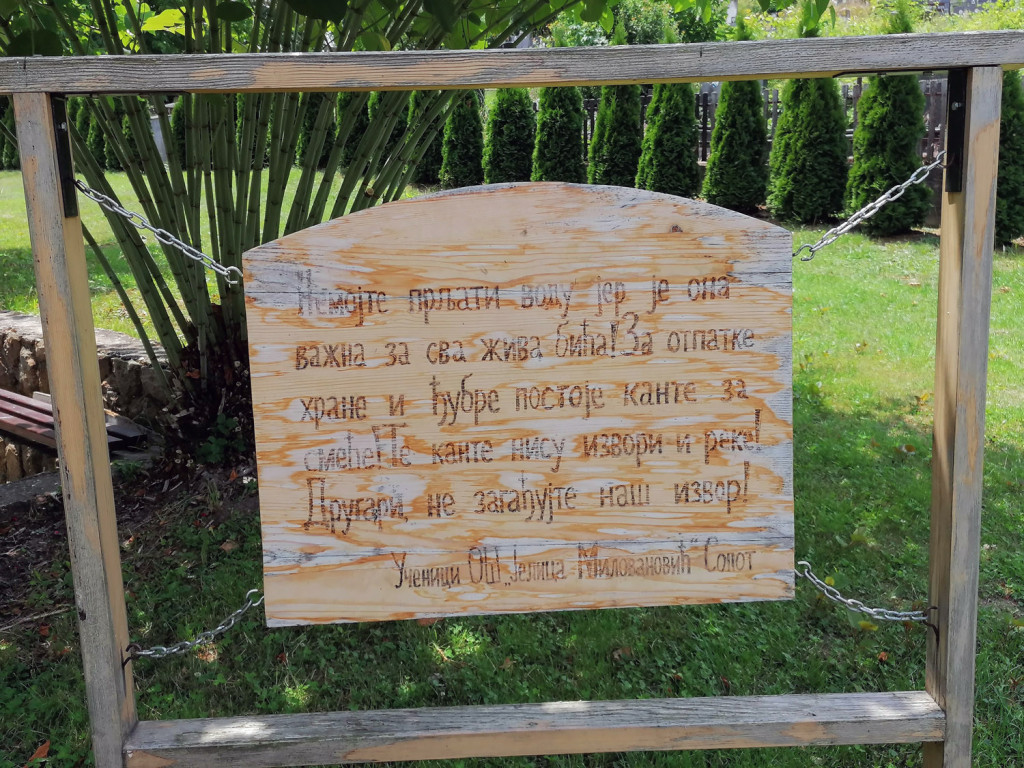 Немојте прљати воду јер је она
важна за сва жива бића! За отпатке
хране и ђубре постоје канте за
смеће! Те канте нису извори и реке!
Другари, не загађујте наш извор!
Ученици ОШ „Јелица Миловановић“ Сопот